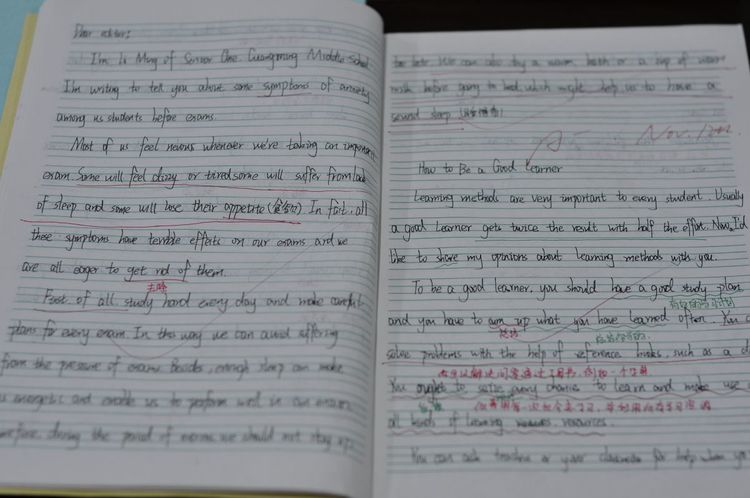 Dear editor:
I'm Li Ming of Senior One Guangming Middle School
I'm writing to tell you about some symptoms of anxiety
among us students before exams.
Most of us feel nervous whenever we're taking an important
exam. Some will feel dizzy or tired some will suffer from lack
of sleep and some will lose their appetite (食欲) In fact, all
these symptoms have terrible effects on our exams and we
are all eager to get rid of them.
去除
First of all study hard every day and make careful
plans for every exam. In this way we can avoid suffering
from the pressure of exams Besides, enough sleep can make
us energetic and enable us to perform well in an exam
during the period of exams we should not stay up
too late We can also try a warm bath or a cup of warm
milk before going to bed, which might help us to have a
sound sleep
Nov. 12th
How to Be a Good Learner
Learning methods are very important to every student. Usually
a good learner gets twice the result with half the effort. Now, I'd
like to share my opinions about learning methods with you.
To be a good learner, you should have a good study plan
and you have to sum up what you have learned often. You
总结
solve problems with the help of reference books, such as a
You ought to seize every chance to learn and make use
all kinds of learning resources.
You can ask teachers or your classmates for help when you